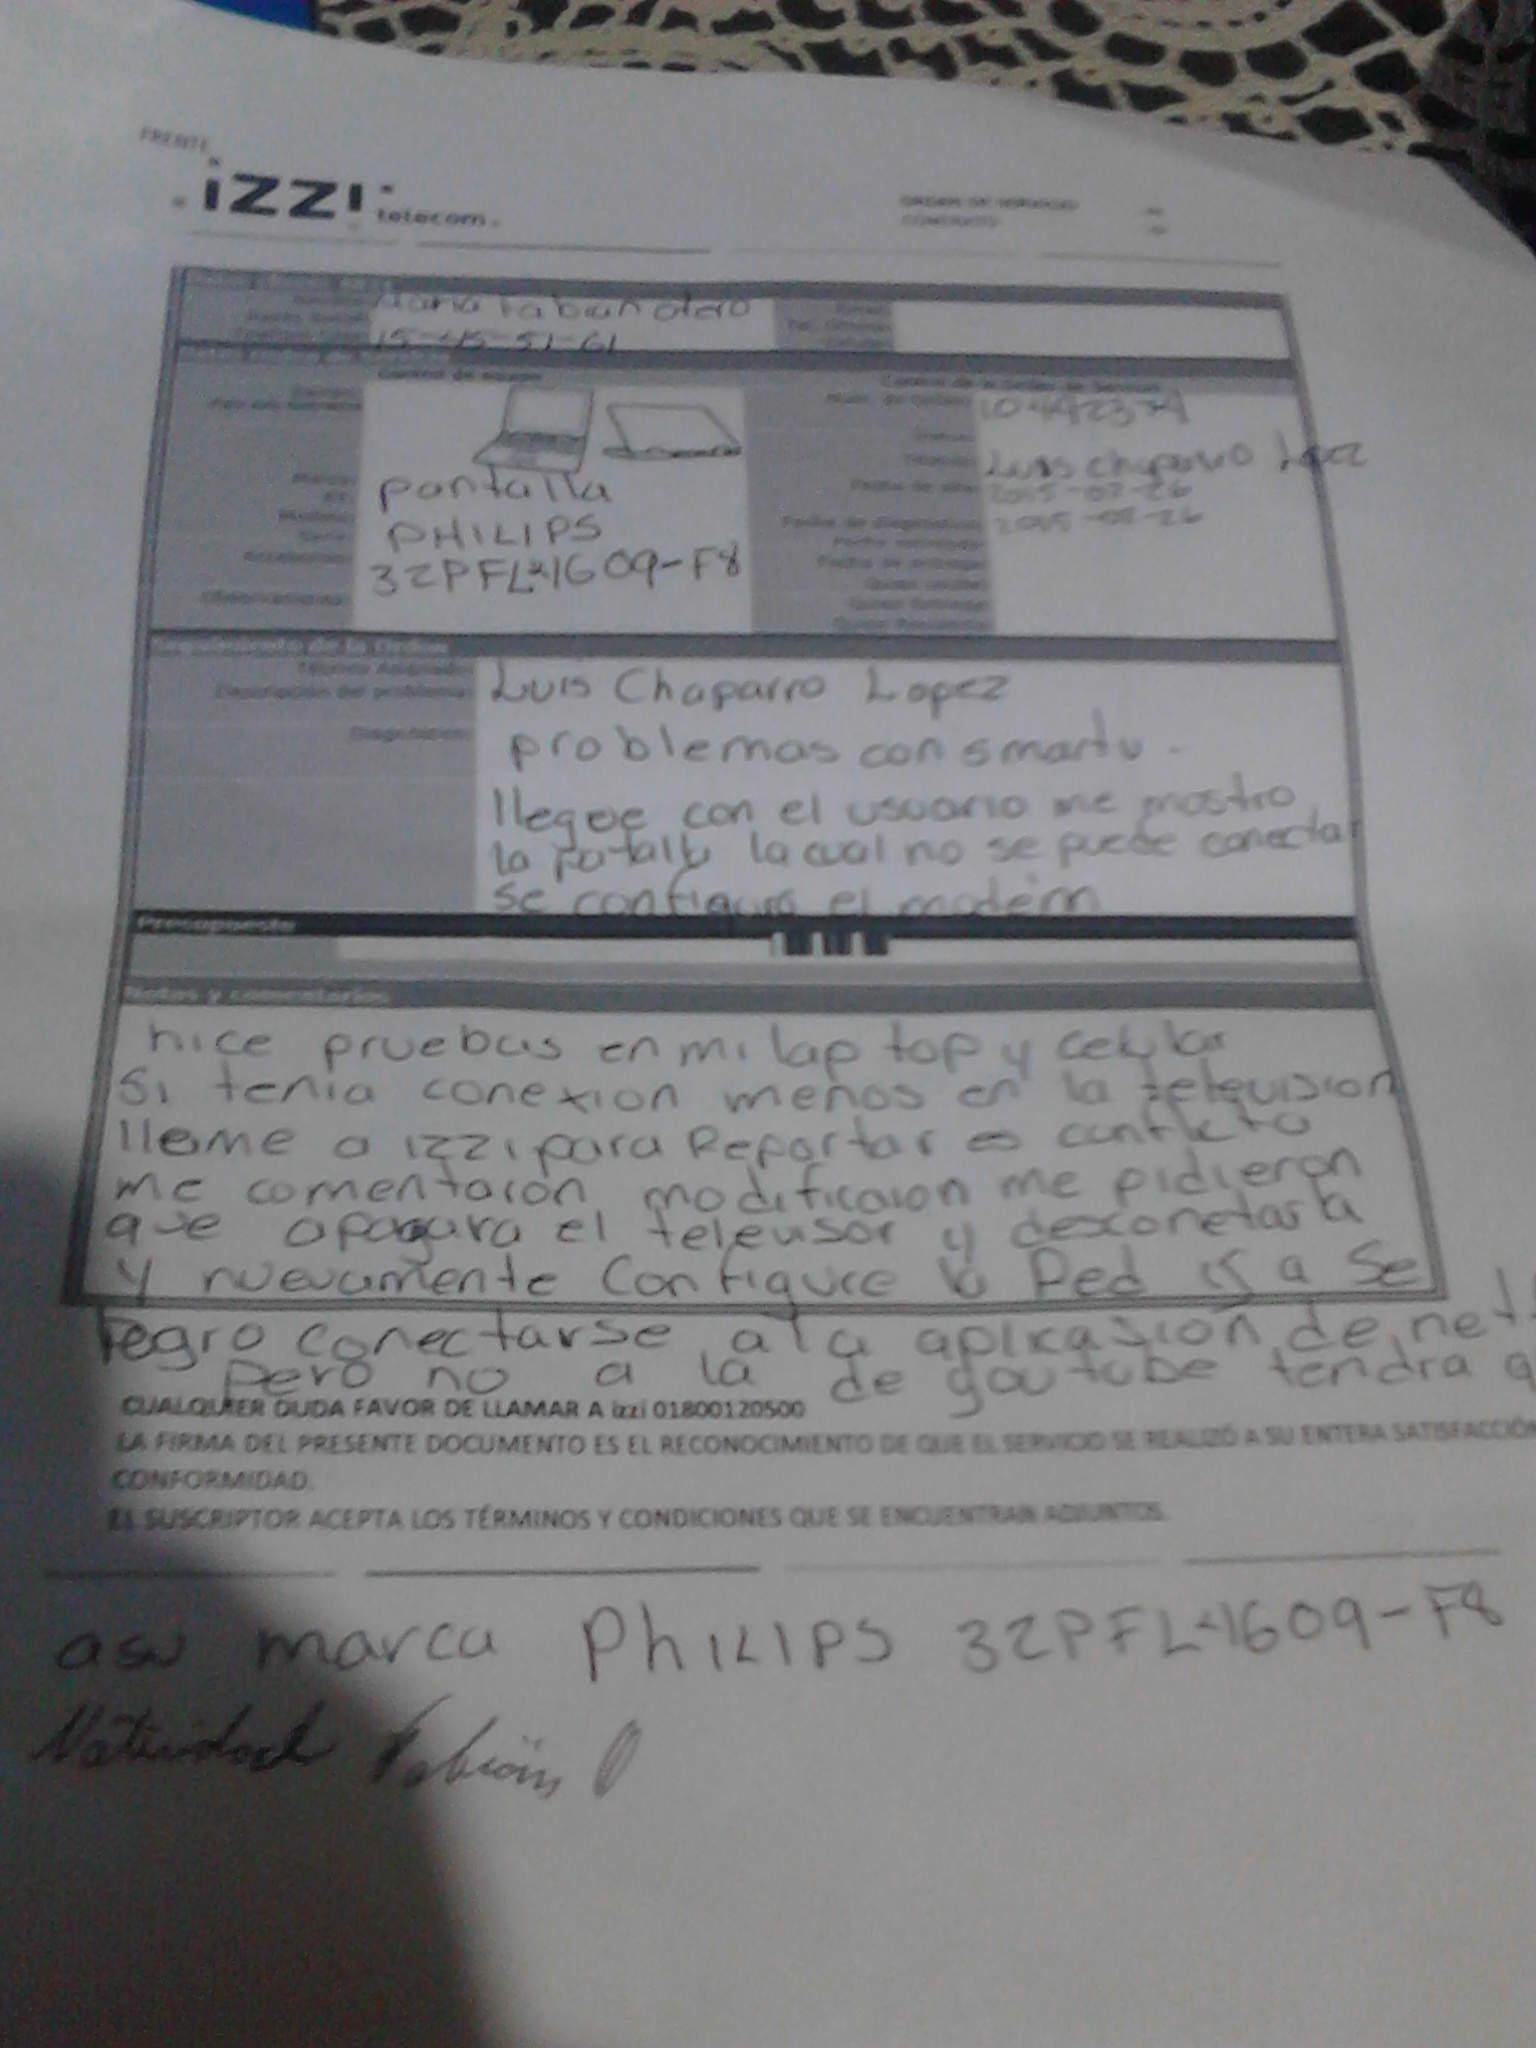 FRENTE
izzi telecom
ORDEN DE SERVICIO
CONTRATO
Maria Fabian otero
15-45-51-61
Control de equipo
Control de la Orden de Servicio
10442374
Luis chaparro Lopez
pantalla
2015-02-26
PHILIPS
Fecha de diagnóstico 2015-02-26
32PFL4609-F8
Fecha de entrega
Seguimiento de la Orden
Técnico Asignado Luis Chaparro Lopez
Descripción del problema
Diagnóstico problemas con smartv
llegue con el usuario me mostro
la patalla la cual no se puede conectar
se configura el modem
Presupuesto
Notas y comentarios
hice pruebas en mi lap top y celular
si tenia conexion menos en la television
lleme a izzi para Reportar conflicto
me comentaron modificaion me pidieron
que apagara el televisor y desconetarla
y nuevamente Configure la Red a Se
logro conectarse a la aplikasion de
pero no a la de youtube tendra
CUALQUIER DUDA FAVOR DE LLAMAR A izzi 01800120500
LA FIRMA DEL PRESENTE DOCUMENTO ES EL RECONOCIMIENTO DE QUE EL SERVICIO SE REALIZÓ A SU ENTERA SATISFACCIÓN
CONFORMIDAD.
EL SUSCRIPTOR ACEPTA LOS TÉRMINOS Y CONDICIONES QUE SE ENCUENTRAN ADJUNTOS.
asu marca PhILIPS 32PFL4609-F8
Natividad Fabián O